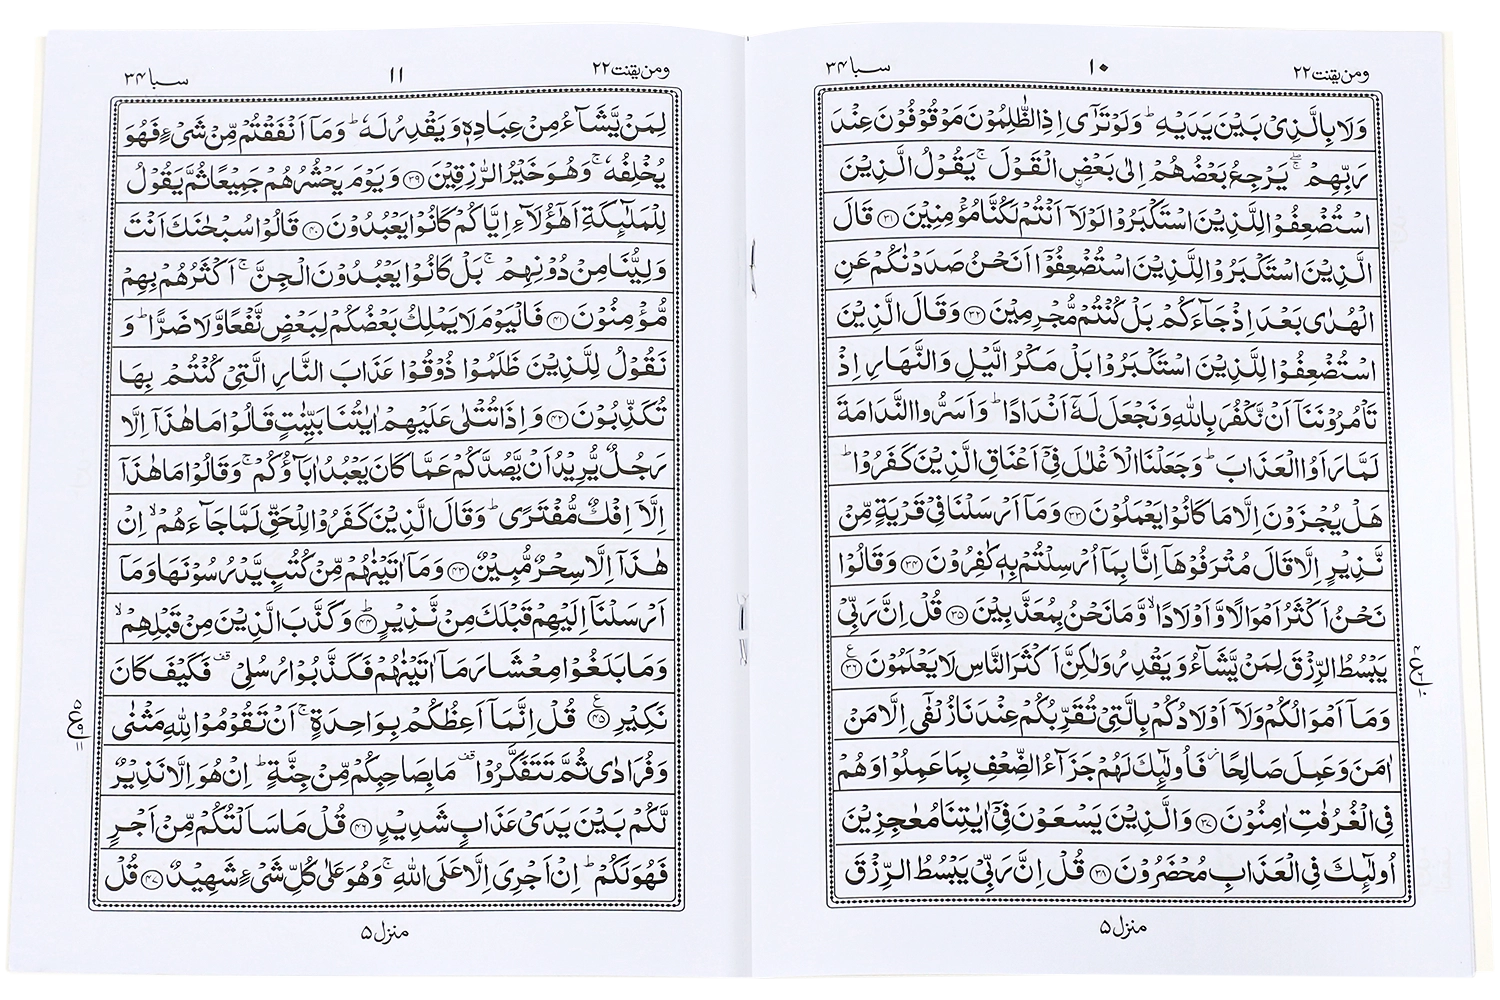 ومن يقنت ٢٢
١٠
سبا ٣٤
وَلَا بِالَّذِىْ بَيْنَ يَدَيْهِ ؕ وَلَوْ تَرٰٓى اِذِ الظّٰلِمُوْنَ مَوْقُوْفُوْنَ عِنْدَ
رَبِّهِمْ ۖۚ يَرْجِعُ بَعْضُهُمْ اِلٰى بَعْضِ ۟الْقَوْلَ ۚ يَقُوْلُ الَّذِيْنَ
اسْتُضْعِفُوْا لِلَّذِيْنَ اسْتَكْبَرُوْا لَوْلَاۤ اَنْتُمْ لَكُنَّا مُؤْمِنِيْنَ ﴿٣١﴾ قَالَ
الَّذِيْنَ اسْتَكْبَرُوْا لِلَّذِيْنَ اسْتُضْعِفُوْۤا اَنَحْنُ صَدَدْنٰكُمْ عَنِ
الْهُدٰى بَعْدَ اِذْ جَآءَكُمْ بَلْ كُنْتُمْ مُّجْرِمِيْنَ ﴿٣٢﴾ وَقَالَ الَّذِيْنَ
اسْتُضْعِفُوْا لِلَّذِيْنَ اسْتَكْبَرُوْا بَلْ مَكْرُ الَّيْلِ وَالنَّهَارِ اِذْ
تَاْمُرُوْنَنَاۤ اَنْ نَّكْفُرَ بِاللّٰهِ وَنَجْعَلَ لَهٗۤ اَنْدَادًا ؕ وَاَسَرُّوا النَّدَامَةَ
لَمَّا رَاَوُا الْعَذَابَ ؕ وَجَعَلْنَا الْاَغْلٰلَ فِىْۤ اَعْنَاقِ الَّذِيْنَ كَفَرُوْا ؕ
هَلْ يُجْزَوْنَ اِلَّا مَا كَانُوْا يَعْمَلُوْنَ ﴿٣٣﴾ وَمَاۤ اَرْسَلْنَا فِىْ قَرْيَةٍ مِّنْ
نَّذِيْرٍ اِلَّا قَالَ مُتْرَفُوْهَاۤ اِنَّا بِمَاۤ اُرْسِلْتُمْ بِهٖ كٰفِرُوْنَ ﴿٣٤﴾ وَقَالُوْا
نَحْنُ اَكْثَرُ اَمْوَالًا وَّاَوْلَادًا ۙ وَّمَا نَحْنُ بِمُعَذَّبِيْنَ ﴿٣٥﴾ قُلْ اِنَّ رَبِّىْ
يَبْسُطُ الرِّزْقَ لِمَنْ يَّشَآءُ وَيَقْدِرُ وَلٰكِنَّ اَكْثَرَ النَّاسِ لَا يَعْلَمُوْنَ ﴿٣٦﴾ ع
وَمَاۤ اَمْوَالُكُمْ وَلَاۤ اَوْلَادُكُمْ بِالَّتِىْ تُقَرِّبُكُمْ عِنْدَنَا زُلْفٰٓى اِلَّا مَنْ
اٰمَنَ وَعَمِلَ صَالِحًا ز فَاُولٰٓئِكَ لَهُمْ جَزَآءُ الضِّعْفِ بِمَا عَمِلُوْا وَهُمْ
فِى الْغُرُفٰتِ اٰمِنُوْنَ ﴿٣٧﴾ وَالَّذِيْنَ يَسْعَوْنَ فِىْۤ اٰيٰتِنَا مُعٰجِزِيْنَ
اُولٰٓئِكَ فِى الْعَذَابِ مُحْضَرُوْنَ ﴿٣٨﴾ قُلْ اِنَّ رَبِّىْ يَبْسُطُ الرِّزْقَ
٤
ع ٦
١٠
منزل ٥
ومن يقنت ٢٢
١١
سبا ٣٤
لِمَنْ يَّشَآءُ مِنْ عِبَادِهٖ وَيَقْدِرُ لَهٗ ؕ وَمَاۤ اَنْفَقْتُمْ مِّنْ شَىْءٍ فَهُوَ
يُخْلِفُهٗ ۚ وَهُوَ خَيْرُ الرّٰزِقِيْنَ ﴿٣٩﴾ وَيَوْمَ يَحْشُرُهُمْ جَمِيْعًا ثُمَّ يَقُوْلُ
لِلْمَلٰٓئِكَةِ اَهٰٓؤُلَآءِ اِيَّاكُمْ كَانُوْا يَعْبُدُوْنَ ﴿٤٠﴾ قَالُوْا سُبْحٰنَكَ اَنْتَ
وَلِيُّنَا مِنْ دُوْنِهِمْ ۚ بَلْ كَانُوْا يَعْبُدُوْنَ الْجِنَّ ۚ اَكْثَرُهُمْ بِهِمْ
مُّؤْمِنُوْنَ ﴿٤١﴾ فَالْيَوْمَ لَا يَمْلِكُ بَعْضُكُمْ لِبَعْضٍ نَّفْعًا وَّلَا ضَرًّا ؕ وَ
نَقُوْلُ لِلَّذِيْنَ ظَلَمُوْا ذُوْقُوْا عَذَابَ النَّارِ الَّتِىْ كُنْتُمْ بِهَا
تُكَذِّبُوْنَ ﴿٤٢﴾ وَاِذَا تُتْلٰى عَلَيْهِمْ اٰيٰتُنَا بَيِّنٰتٍ قَالُوْا مَا هٰذَاۤ اِلَّا
رَجُلٌ يُّرِيْدُ اَنْ يَّصُدَّكُمْ عَمَّا كَانَ يَعْبُدُ اٰبَآؤُكُمْ ۚ وَقَالُوْا مَا هٰذَاۤ
اِلَّاۤ اِفْكٌ مُّفْتَرًى ؕ وَقَالَ الَّذِيْنَ كَفَرُوْا لِلْحَقِّ لَمَّا جَآءَهُمْ ۙ اِنْ
هٰذَاۤ اِلَّا سِحْرٌ مُّبِيْنٌ ﴿٤٣﴾ وَمَاۤ اٰتَيْنٰهُمْ مِّنْ كُتُبٍ يَّدْرُسُوْنَهَا وَمَاۤ
اَرْسَلْنَاۤ اِلَيْهِمْ قَبْلَكَ مِنْ نَّذِيْرٍ ؕ﴿٤٤﴾ وَكَذَّبَ الَّذِيْنَ مِنْ قَبْلِهِمْ ۙ
وَمَا بَلَغُوْا مِعْشَارَ مَاۤ اٰتَيْنٰهُمْ فَكَذَّبُوْا رُسُلِىْ قف فَكَيْفَ كَانَ
نَكِيْرِ ﴿٤٥﴾ ع قُلْ اِنَّمَاۤ اَعِظُكُمْ بِوَاحِدَةٍ ۚ اَنْ تَقُوْمُوْا لِلّٰهِ مَثْنٰى
وَفُرَادٰى ثُمَّ تَتَفَكَّرُوْا قف مَا بِصَاحِبِكُمْ مِّنْ جِنَّةٍ ؕ اِنْ هُوَ اِلَّا نَذِيْرٌ
لَّكُمْ بَيْنَ يَدَىْ عَذَابٍ شَدِيْدٍ ﴿٤٦﴾ قُلْ مَا سَاَلْتُكُمْ مِّنْ اَجْرٍ
فَهُوَ لَكُمْ ؕ اِنْ اَجْرِىَ اِلَّا عَلَى اللّٰهِ ۚ وَهُوَ عَلٰى كُلِّ شَىْءٍ شَهِيْدٌ ﴿٤٧﴾ قُلْ
٥
ع ٩
١١
منزل ٥